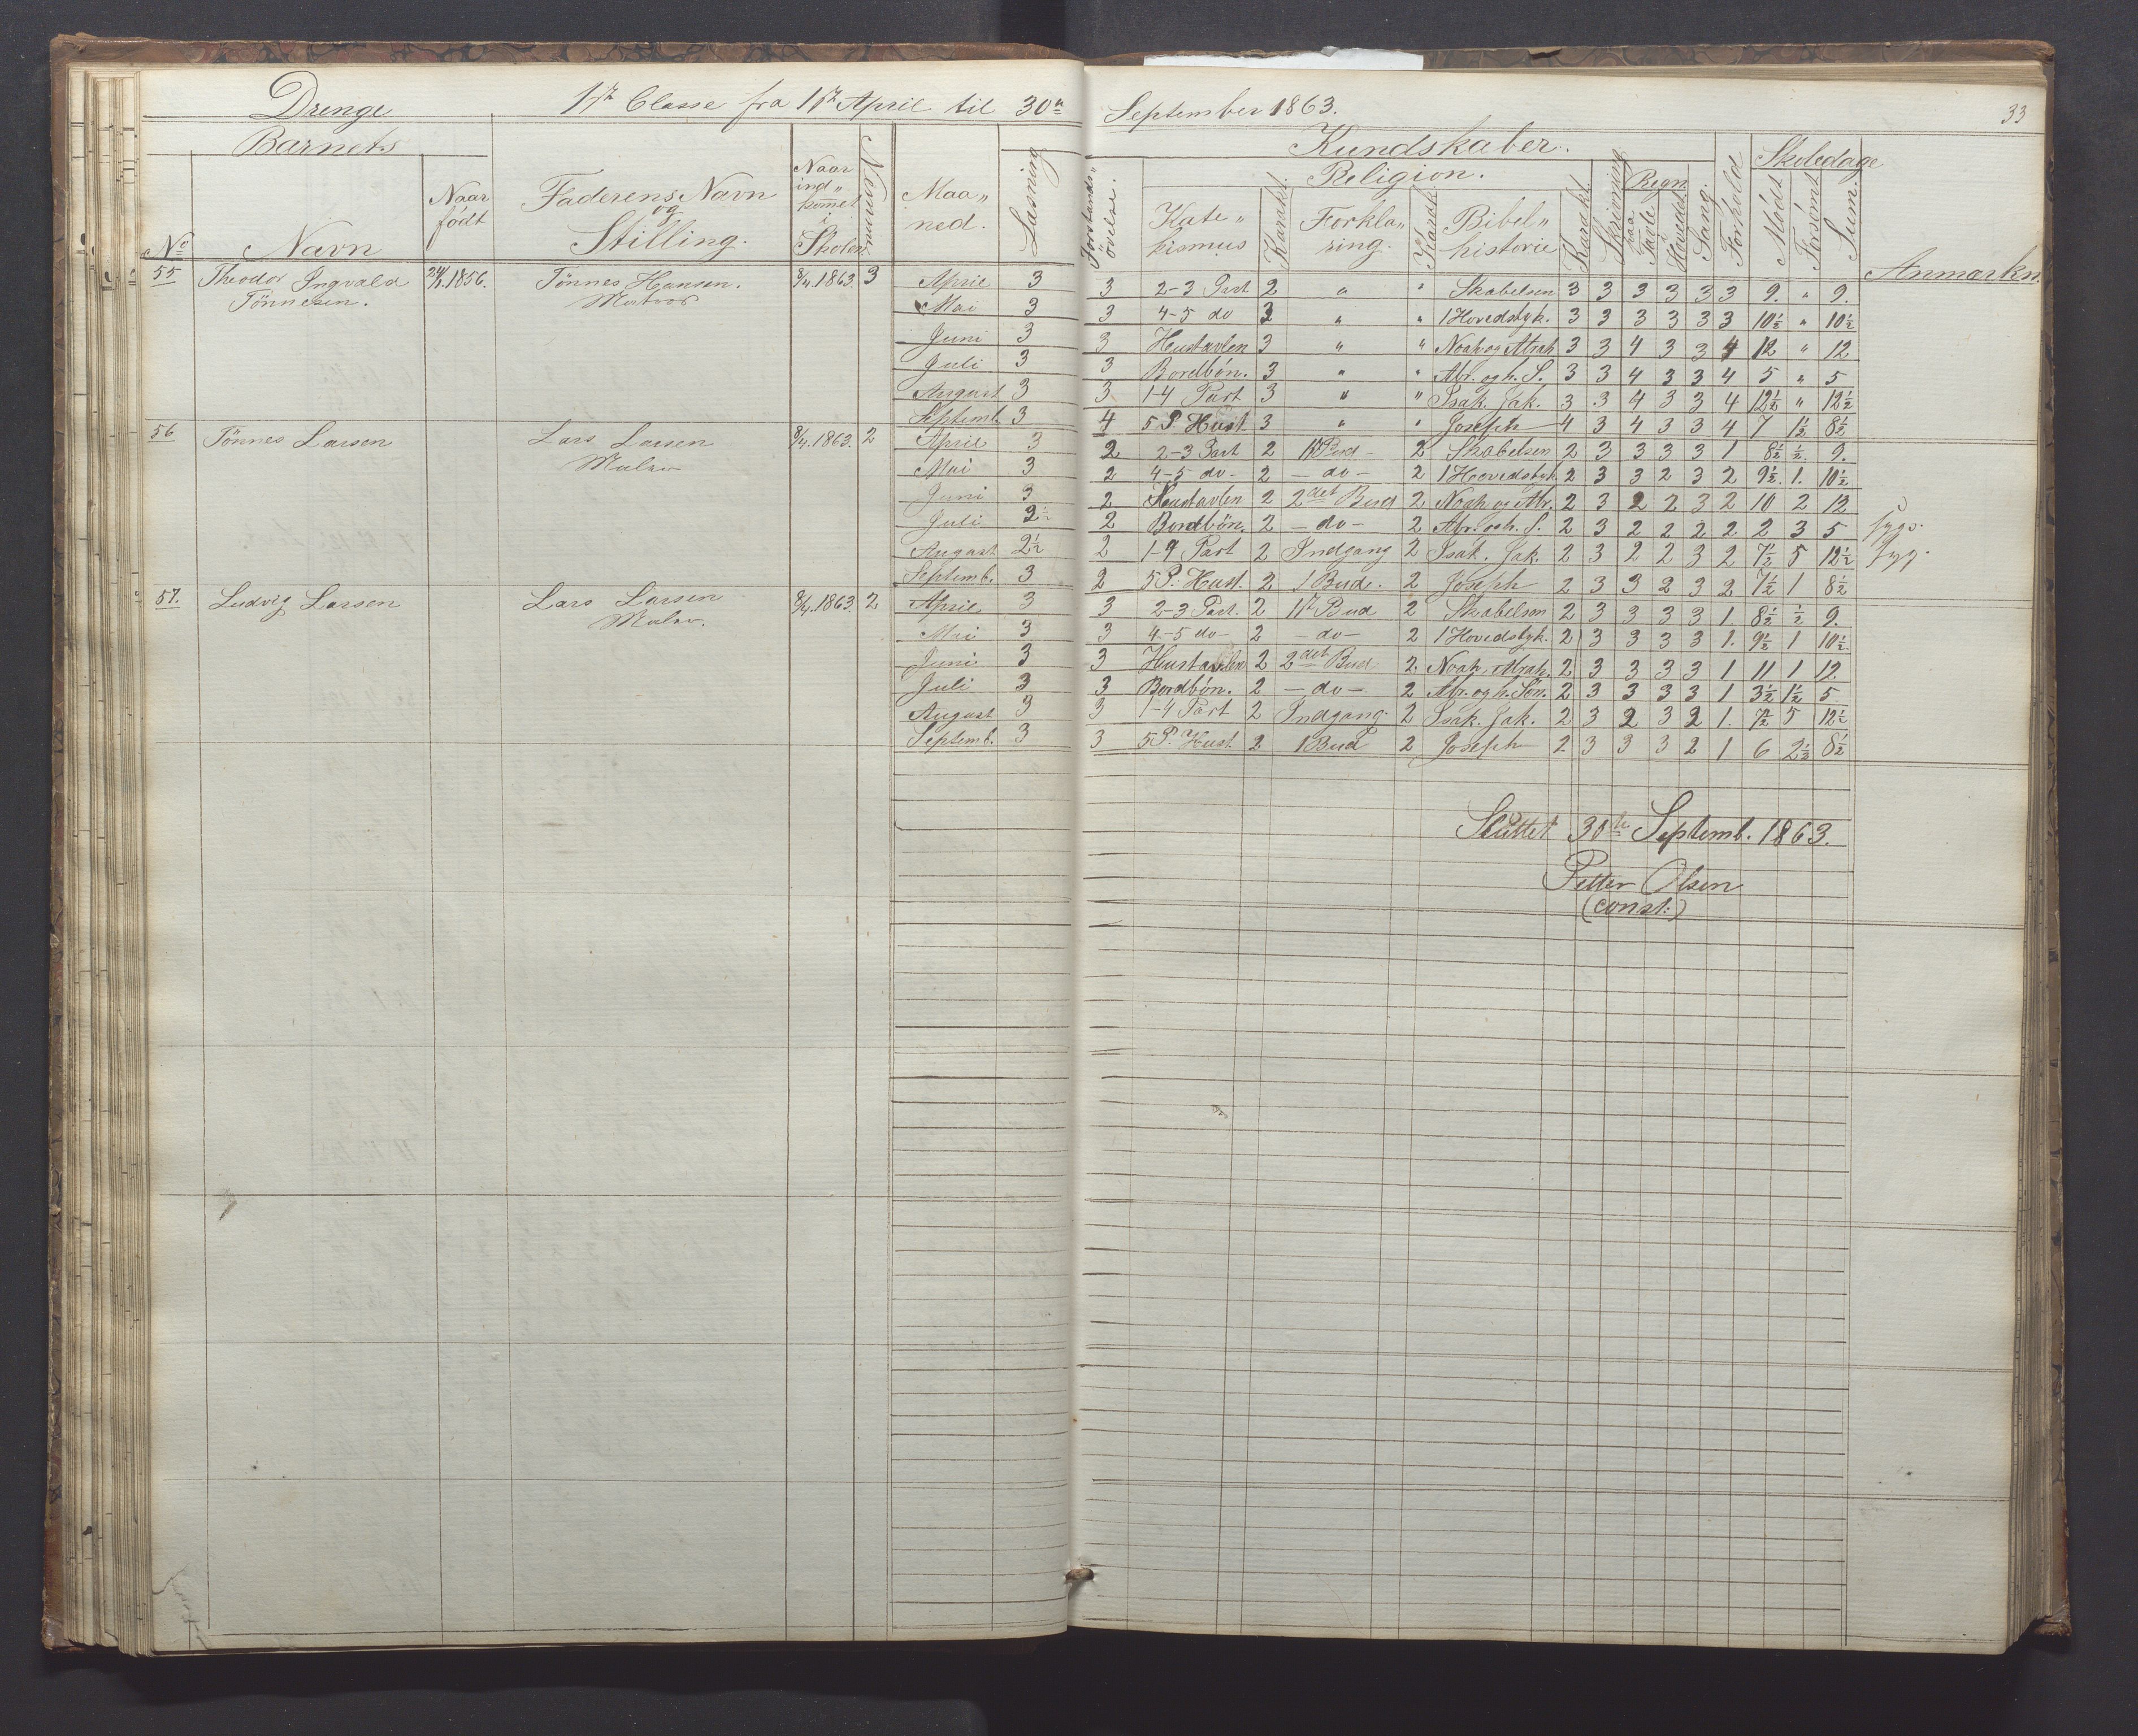 Drenge 1ste Classe fra 1ste April til 30te September 1863. 33
Barnets Kundskaber. Skoledage
No Navn Naar født Faderens Navn og Stilling. Naar ind„ kommet i Skolen Nummer Maa„ ned. Læsning Forstands„ øvelse. Religion. Kate„ kismus Karakt. Forkla„ ring. Karakt. Bibel„ historie Karakt. Skrivning Regn. paa Tavle Hovedet. Sang. Forhold Mødt Forsømt Sum. Anmærkn.
55 Theodor Ingvald 24/1.1856. Tönnes Hansen. 8/4.1863. 3 April 3 3 2-3 Part 2 „ „ Skabelsen 3 3 3 3 3 3 9. „ 9.
Tönnesen. Matros Mai 3 3 4-5 do 3 „ „ 1 Hovedstyk. 3 3 3 3 3 3 10½ „ 10½
Juni 3 3 Hustavlen 3 „ „ Noah og Abrah. 3 3 4 3 3 4 12 „ 12
Juli 3 3 Bordbön. 3 „ „ Abr. og h. S. 3 3 4 3 3 4 5 „ 5
August 3 3 1-4 Part 3 „ „ Isak. Jak. 3 3 4 3 3 4 12½ „ 12½
Septemb. 3 4 5 P. Hust 3 „ „ Joseph 4 3 4 3 3 4 7 1½ 8½
56 Tönnes Larsen Lars Larsen 8/4.1863. 2 April 3 2 2-3 Part 2 1ste Bud 2 Skabelsen 2 3 3 3 3 1 8½ ½. 9.
Maler Mai 3 2 4-5 do - 2 - do - 2 1 Hovedstyk. 2 3 3 2 3 2 9½. 1. 10½
Juni 3 2 Hustavlen 2 2det Bud 2 Noah og Abr. 2 3 2 2 3 2 10 2 12
Juli 2½ 2 Bordbön. 2 - do - 2 Abr. og h. S. 2 3 2 2 2 2 2 3 5 syg.
August 2½ 2 1-4 Part 2 Indgang 2 Isak. Jak. 2 3 2 2 3 2 7½ 5 12½ syg.
Septemb. 3 2 5 P. Hust. 2 1 Bud. 2 Joseph 2 3 3 2 3 2 7½ 1 8½
57. Ludvig Larsen Lars Larsen 8/4.1863. 2 April 3 3 2-3 Part. 2 1ste Bud 2 Skabelsen 2 3 3 3 3 1 8½ ½ 9.
Maler. Mai 3 3 4-5 do - 2 - do - 2 1 Hovedstyk. 2 3 3 3 3 1. 9½ 1 10½.
Juni 3 3 Hustavlen 2 2det Bud 2. Noah. Abrah. 2 3 3 3 3 1 11 1 12
Juli 3 3 Bordbön. 2 - do - 2 Abr. og h. Sön. 2 3 3 3 3 1 3½ 1½ 5
August 3 3 1-4 Part 2 Indgang. 2 Isak. Jak. 2 3 2 3 2 1. 7½ 5 12½
Septemb. 3 3 5 P. Hust. 2 1 Bud 2 Joseph 2 3 3 3 2 1 6 2½ 8½
Sluttet 30te Septemb. 1863.
Petter Olsen
(const:)